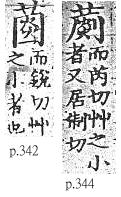 而芮切艸之小
者又居例切
p.344
而銳切艸
之小者也
p.342